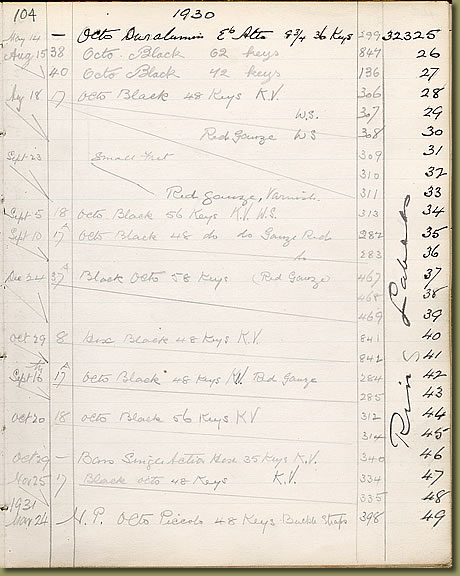 104 1930
May 14 — Octo Duralumin Eb Alto 8 3/4 36 Keys 299 32325
Aug 15 38 Octo Black 62 keys 847 26
40 Octo Black 72 keys 136 27
Aug 18 17 Octo Black 48 Keys K.V. 306 28
W.S. 307 29
Red Gauze WS 308 30
Sept 23 Small Fret 309 31
310 32
Red Gauze, Varnish. 311 33
Sept 5 18 Octo Black 56 Keys K.V. W.S. 313 34
Sept 10 17A Octo Black 48 do do Gauze Red 282 35
do 283 36
Dec 24 37A Black Octo 58 Keys (Red Gauze) 467 37
468 38
469 39
Oct 29 8 Hexe Black 48 Keys K.V. 841 40
842 41
Sept 16 17A Octo Black 48 Keys K.V. Red Gauze 284 42
285 43
Oct 20 18 Octo Black 56 Keys K.V 312 44
314 45
Oct 29 — Bari Single Action Hexe 35 Keys K.V. 340 46
Nov 25 17 Black Octo 48 Keys K.V. 334 47
335 48
1931
Mar 24 N.P. Octo Piccolo 48 Keys Buckle Straps 398 49
Rims Labels